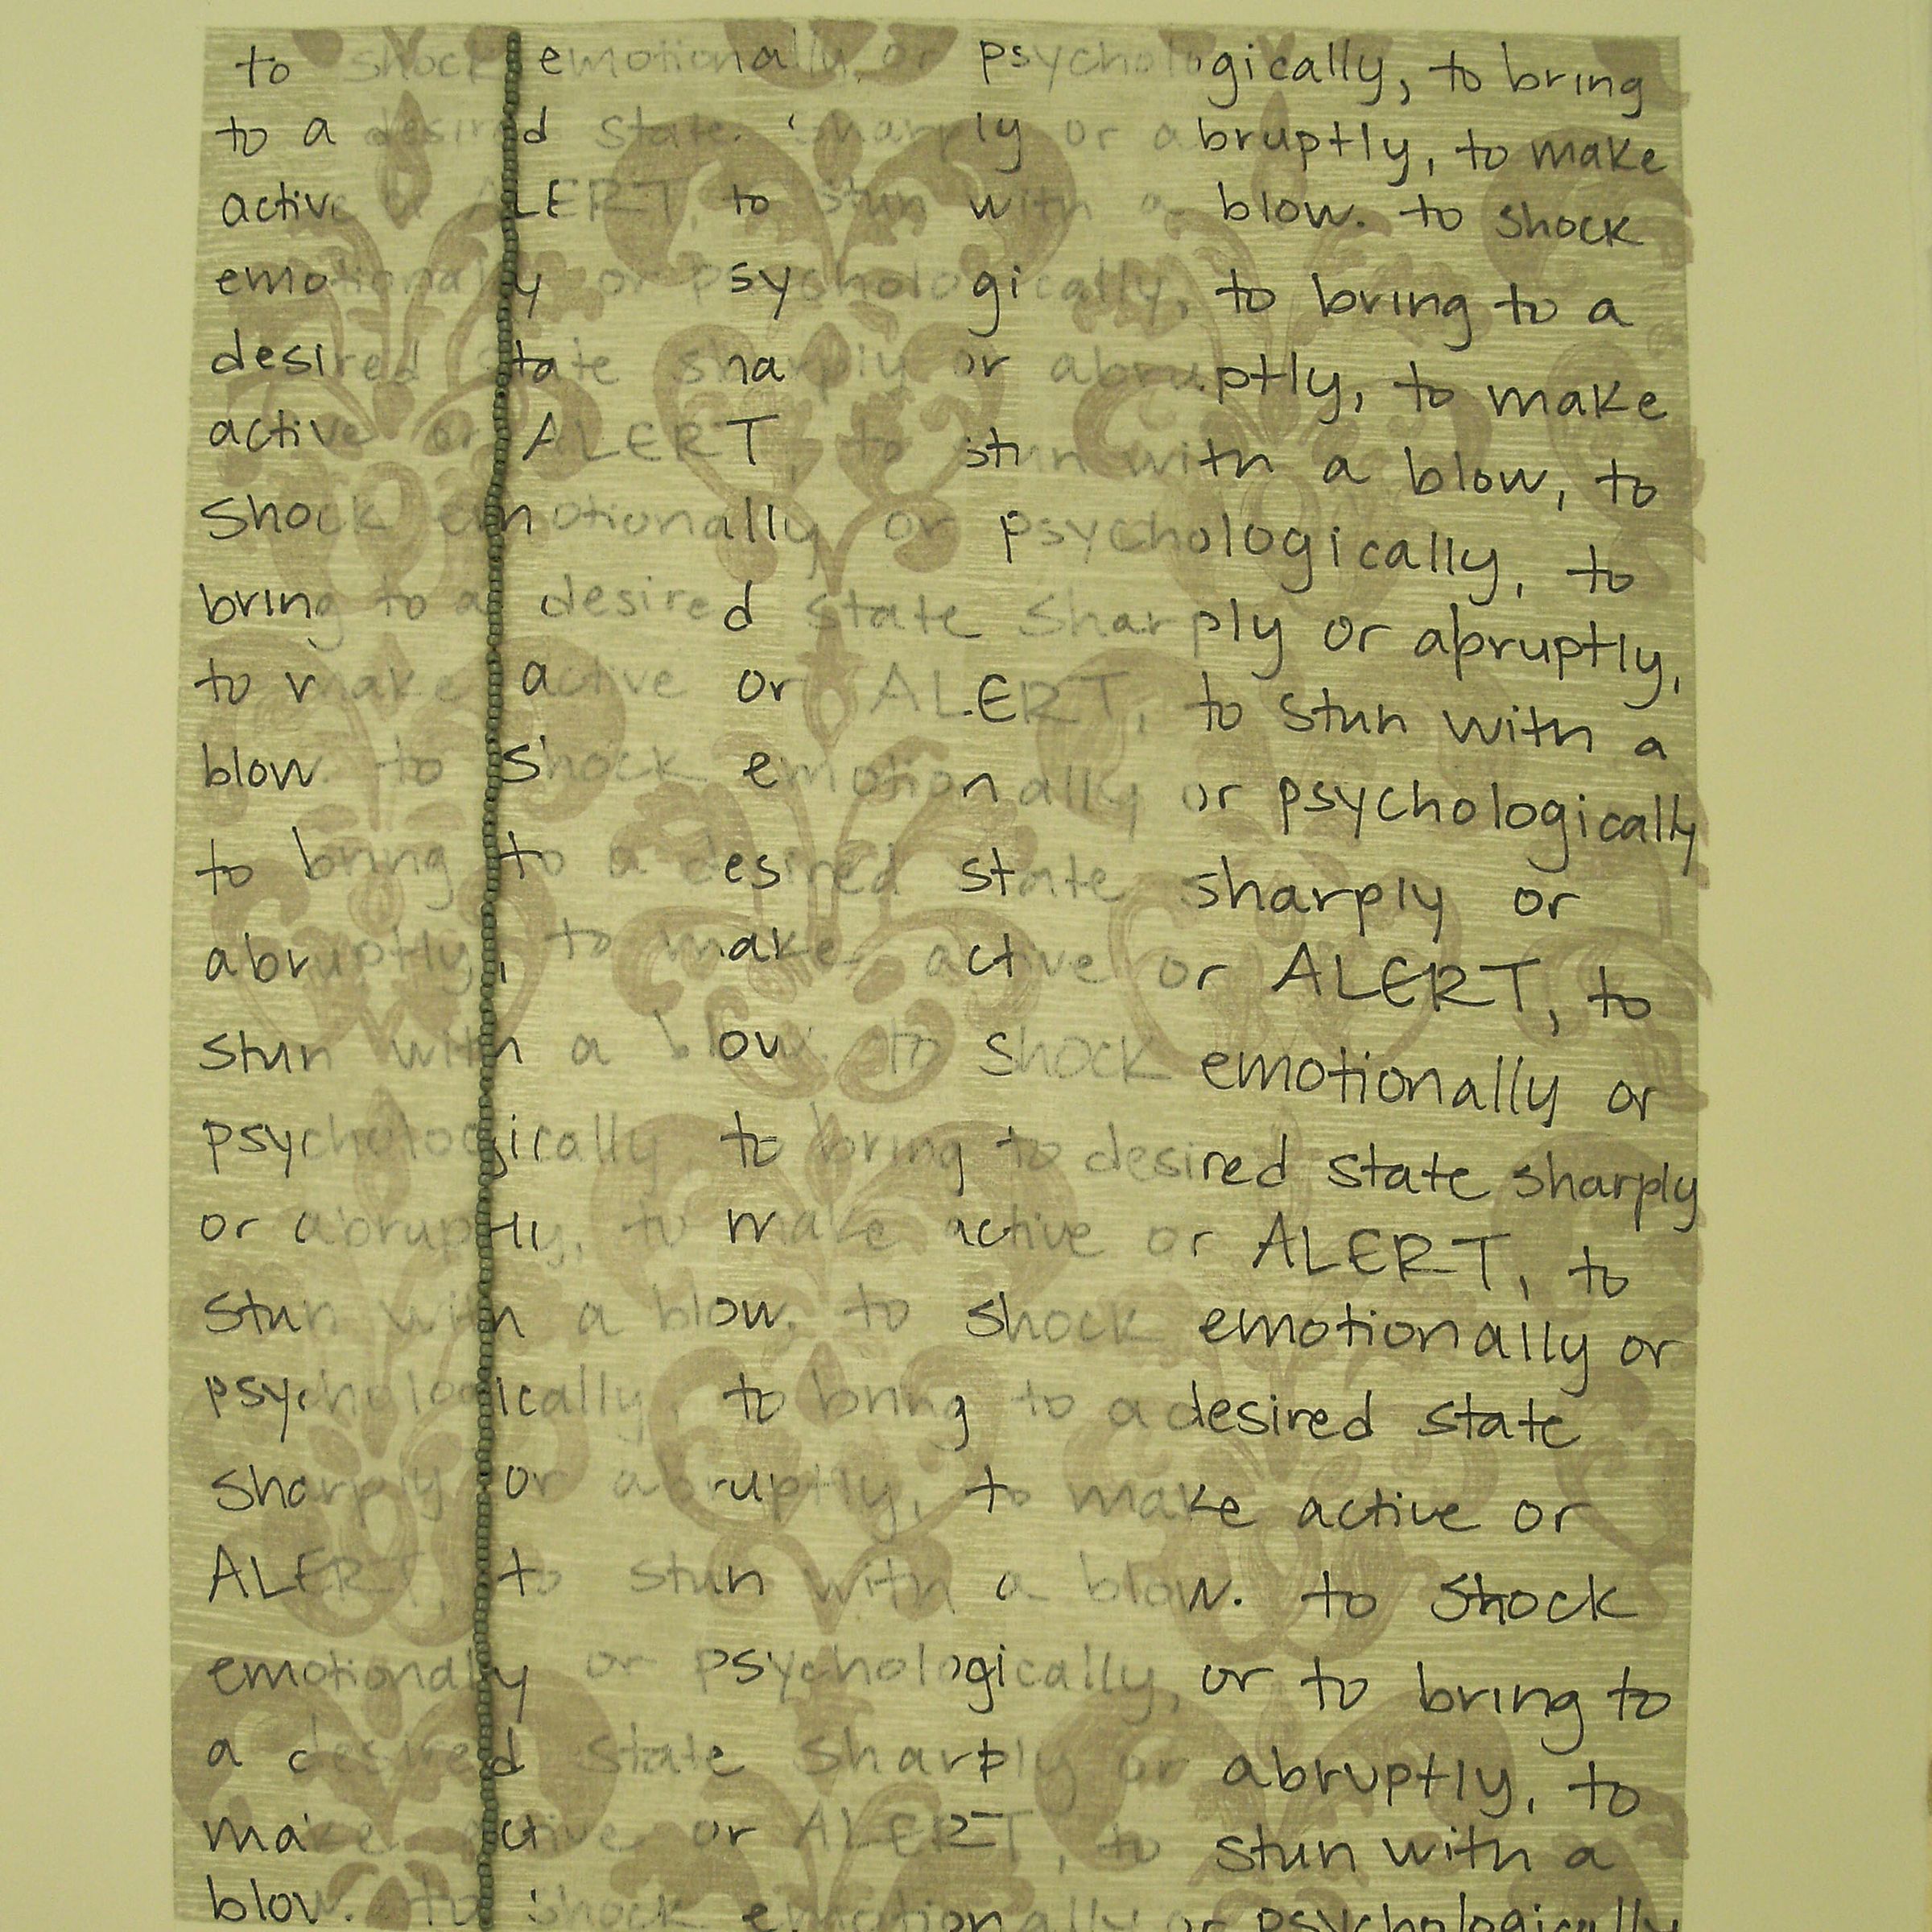 to shock emotionally, or psychologically, to bring
to a desired state. sharply or abruptly, to make
active or ALERT, to stun with a blow. to shock
emotionally or psychologically, to bring to a
desired state sharply or abruptly, to make
active or ALERT, to stun with a blow, to
shock emotionally or psychologically, to
bring to a desired state sharply or abruptly,
to make active or ALERT, to stun with a
blow. to shock emotionally or psychologically
to bring to a desired state sharply or
abruptly, to make active or ALERT, to
stun with a blow. to shock emotionally or
psychologically to bring to desired state sharply
or abruptly, to make active or ALERT, to
stun with a blow, to shock emotionally or
psychologically, to bring to a desired state
sharply or abruptly, to make active or
ALERT, to stun with a blow. to shock
emotionally or psychologically, or to bring to
a desired state sharply or abruptly, to
make active or ALERT, to stun with a
blow. to shock emotionally or psychologically